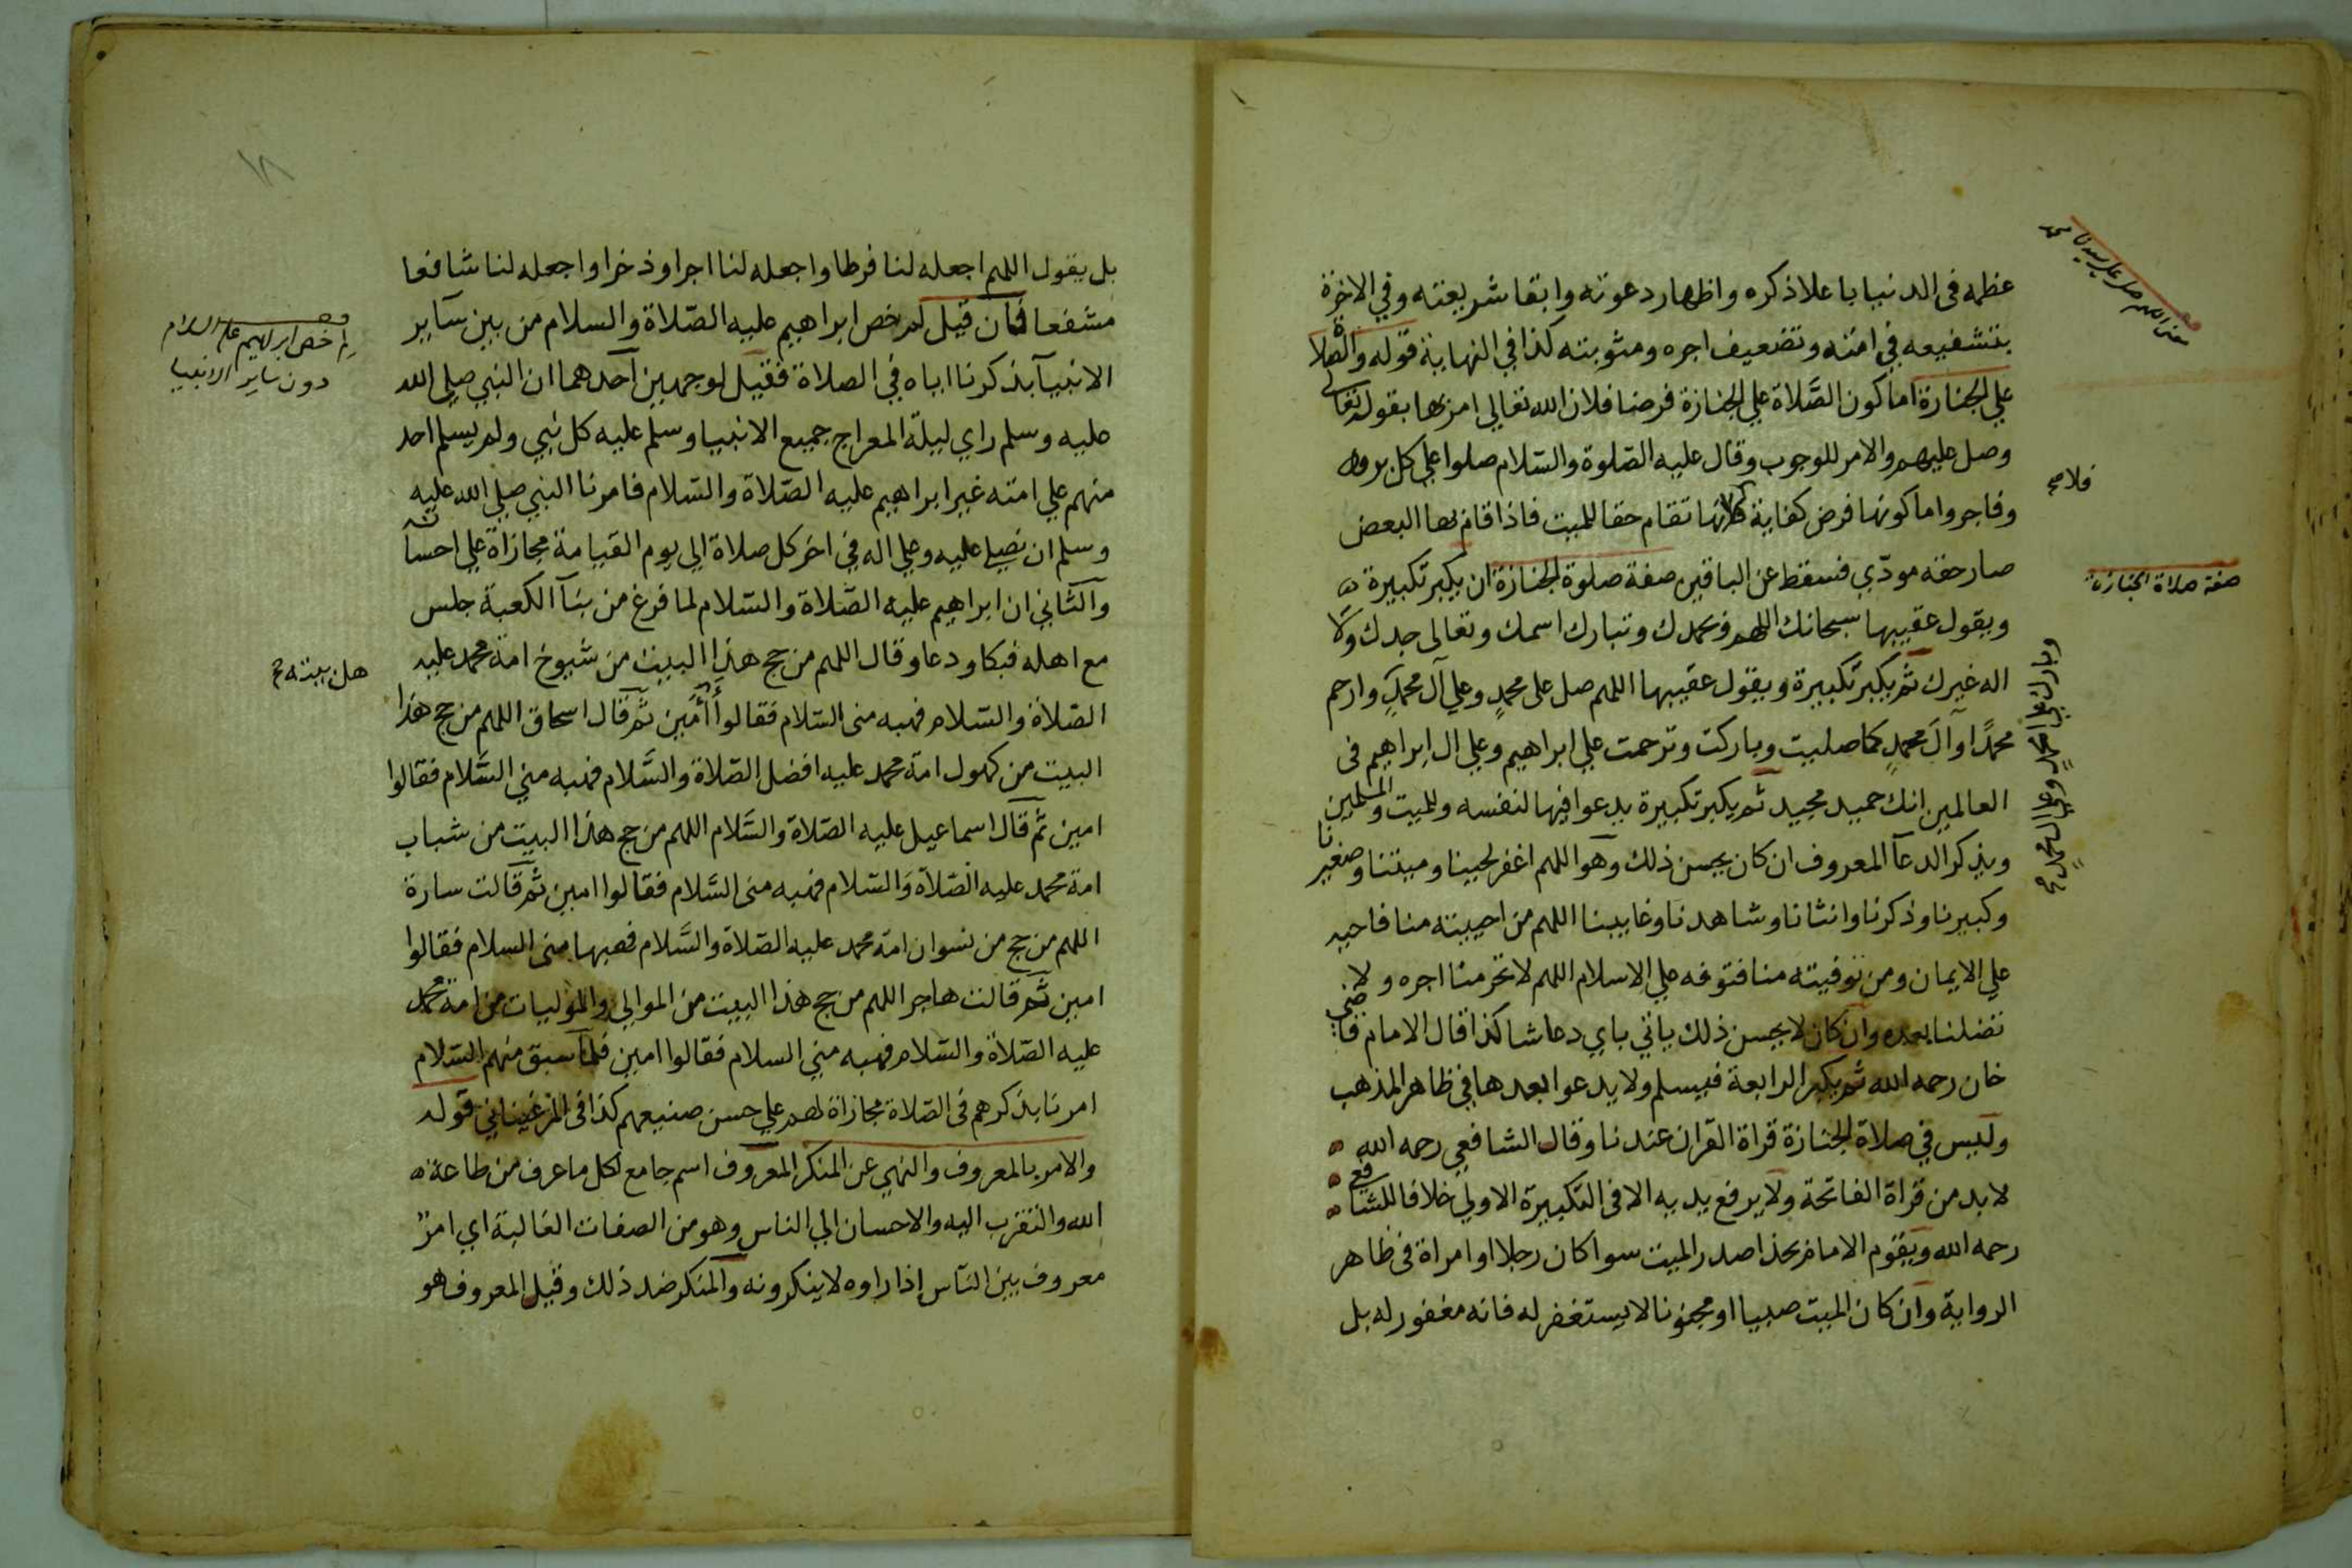 عظمه فى الدنيا باعلا ذكره واظهار دعوته وابقا شريعته وفي الاخرة
بتشفيعه في امته وتضعيف اجره ومثوبته كذا في النهاية قوله والصلاة
علي الجنازة اما كون الصَّلاة علي الجنازة فرضا فلان الله تعالي امر بها بقوله تعالى
وصل عليهم والامر للوجوب وقال عليه الصّلوة والسّلام صلوا علي كل بر
وفاجر واما كونها فرض كفاية فلانها تقام حقا للميت فاذا قام بها البعض
صار حقه مودّي فسقط عن الباقين صفة صلوة الجنازة ان يكبر تكبيرة
ويقول عقيبها سبحانك اللهم وبحمدك وتبارك اسمك وتعالى جدك ولا
اله غيرك ثم يكبر تكبيرة ويقول عقيبها اللهم صل على محمدٍ وعلي آل محمدٍ وارحم
محمدًا وآل محمدٍ كما صليت وباركت وترحمت علي ابراهيم وعلي ال ابراهيم فى
العالمين انك حميد مجيد ثم يكبر تكبيرة يدعوا فيها لنفسه وللميت وللمسلمين
ويذكر الدعآ المعروف ان كان يحسن ذلك وهو اللهم اغفر لحينا وميتنا وصغيرنا
وكبيرنا وذكرنا وانثانا وشاهدنا وغايبنا اللهم من احييته منا فاحيه
علي الايمان ومن توفيته منا فتوفه علي الاسلام اللهم لا تحرمنا اجره ولا
تضلنا بعده وان كان لا يحسن ذلك ياتي باي دعا شا كذا قال الامام قاضي
خان رحمه الله ثم يكبر الرابعة فيسلم ولا يدعوا بعدها في ظاهر المذهب
وليس في صلاة الجنازة قراة القران عندنا وقال الشافعي رحمه الله
لا بد من قراة الفاتحة ولا يرفع يديه الا فى التكبيرة الاولي خلافا للشافعي
رحمه الله ويقوم الامام بحذا صدر الميت سوا كان رجلا او امراة فى ظاهر
الرواية وان كان الميت صبيا او مجنونا لا يستغفر له فانه مغفور له بل
صلاة الجنازة صفة
وبارك على محمدٍ وعلي ال محمدٍ
بل يقول اللهم اجعله لنا فرطا واجعله لنا اجرا وذخرا واجعله لنا شافعا
مشفعا فان قيل لم خص ابراهيم عليه الصّلاة والسلام من بين سآير
الانبيآ بذكرنا اياه في الصلاة فقيل لوجهين آحدهما ان النبي صلي الله
عليه وسلم راي ليلة المعراج جميع الانبيا وسلم عليه كل نبي ولم يسلم احد
منهم علي امته غير ابراهيم عليه الصّلاة والسّلام فامرنا النبي صلي الله عليه
وسلم ان نصلي عليه وعلي اله في اخر كل صلاة الي يوم القيامة مجازاة علي احسانه
والثّاني ان ابراهيم عليه الصّلاة والسّلام لما فرغ من بنآ الكعبة جلس
مع اهله فبكا ودعا وقال اللهم من حج هذا البيت من شيوخ امة محمد عليه
الصّلاة والسّلام فهبه منى السّلام فقالوا أمين ثم قال اسحاق اللهم من حج هذا
البيت من كهول امة محمد عليه افضل الصّلاة والسَّلام فهبه مني السَّلام فقالوا
امين ثم قال اسماعيل عليه الصّلاة والسَّلام اللهم من حج هذا البيت من شباب
امة محمد عليه الصّلاة والسّلام فهبه منى السَّلام فقالوا امين ثم قالت سارة
اللهم من حج من نسوان امة محمد عليه الصّلاة والسَّلام فهبها منى السلام فقالوا
امين ثم قالت هاجر اللهم من حج هذا البيت من الموالي والموليات من امة محمد
عليه الصّلاة والسّلام فهبه مني السلام فقالوا امين فلما سبق منهم السّلام
امرنا بذكرهم فى الصّلاة مجازاة لهم علي حسن صنيعهم كذا فى المرغيناني قوله
والامر بالمعروف والنهي عن المنكر المعروف اسم جامع لكل ما عرف من طاعة
الله والتقرب اليه والاحسان الي الناس وهو من الصفات الغالبة اي امرٌ
معروف بين النآس إذا راوه لا ينكرونه والمنكر ضد ذلك وقيل المعروف هو
لم خص ابراهيم عليه السلام
دون ساير الانبيا